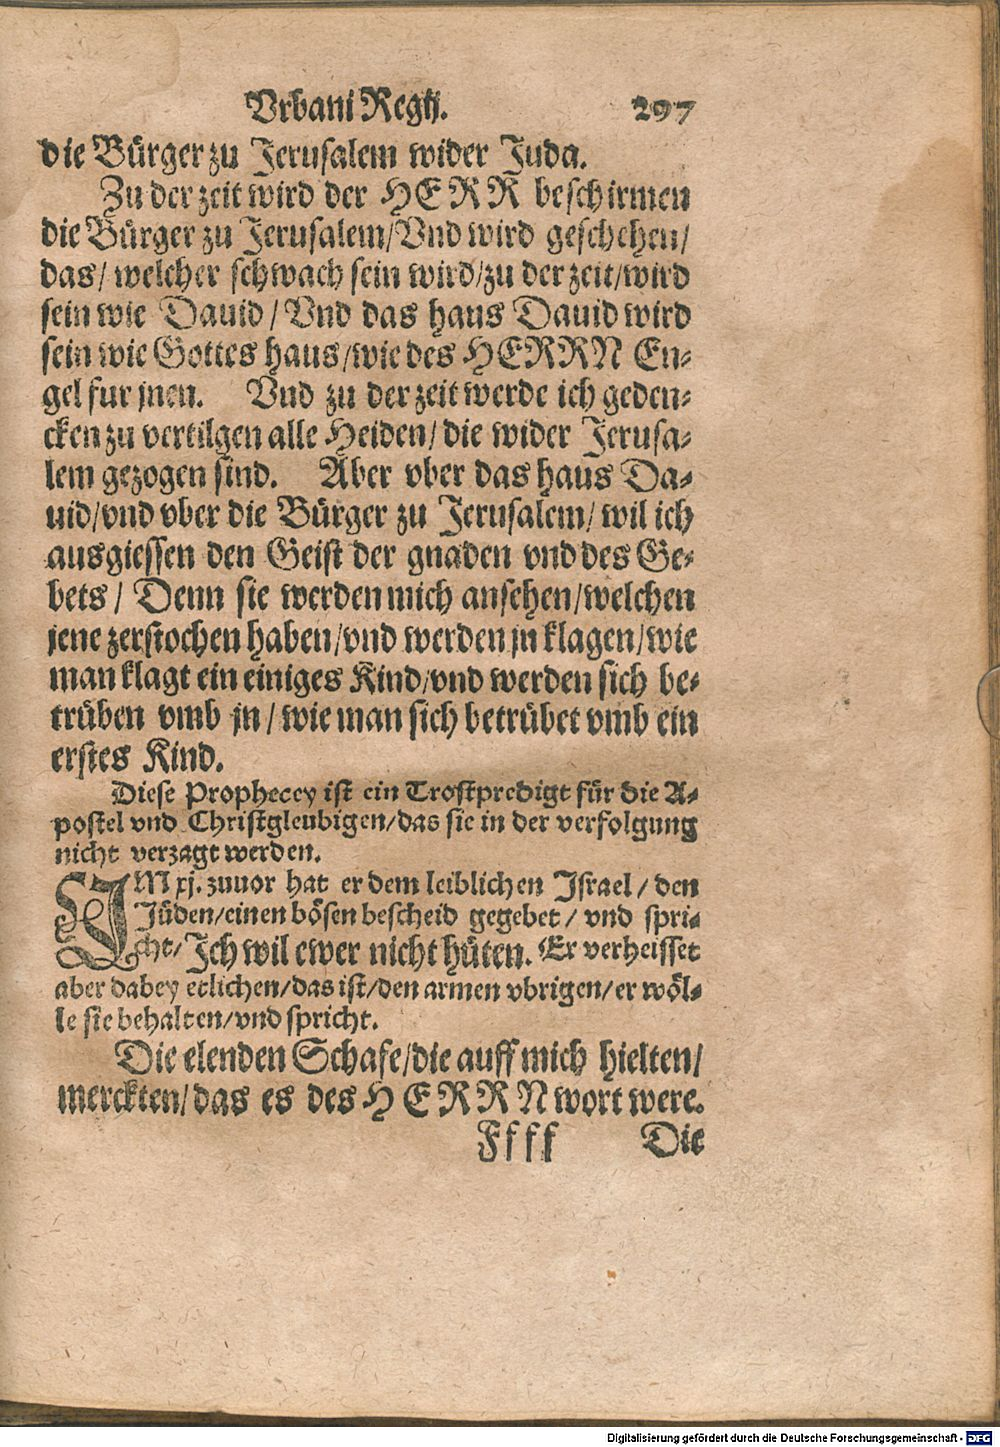 Vrbani Regij. 297
die Bürger zu Jerusalem wider Juda.
Zu der zeit wird der HERR beschirmen
die Bürger zu Jerusalem/Vnd wird geschehen/
das/ welcher schwach sein wird/zu der zeit/wird
sein wie Dauid/ Vnd das haus Dauid wird
sein wie Gottes haus/wie des HERRN En-
gel fur jnen. Vnd zu der zeit werde ich geden-
cken zu vertilgen alle Heiden/ die wider Jerusa-
lem gezogen sind. Aber vber das haus Da-
uid/vnd vber die Bürger zu Jerusalem/ wil ich
ausgiessen den Geist der gnaden vnd des Ge-
bets/ Denn sie werden mich ansehen/welchen
jene zerstochen haben/vnd werden jn klagen/wie
man klagt ein einiges Kind/vnd werden sich be-
trüben vmb jn/ wie man sich betrübet vmb ein
erstes Kind.
Diese Prophecey ist ein Trostpredigt für die A-
postel vnd Christgleubigen/das sie in der verfolgung
nicht verzagt werden.
IM xj. zuuor hat er dem leiblichen Israel/ den
Jüden/einen bösen bescheid gegebet/ vnd spri-
cht/ Ich wil ewer nicht hüten. Er verheisset
aber dabey etlichen/das ist/den armen vbrigen/er wöl-
le sie behalten/vnd spricht.
Die elenden Schafe/die auff mich hielten/
merckten/das es des HERRN wort were.
Ffff Die
Digitalisierung gefördert durch die Deutsche Forschungsgemeinschaft - DFG